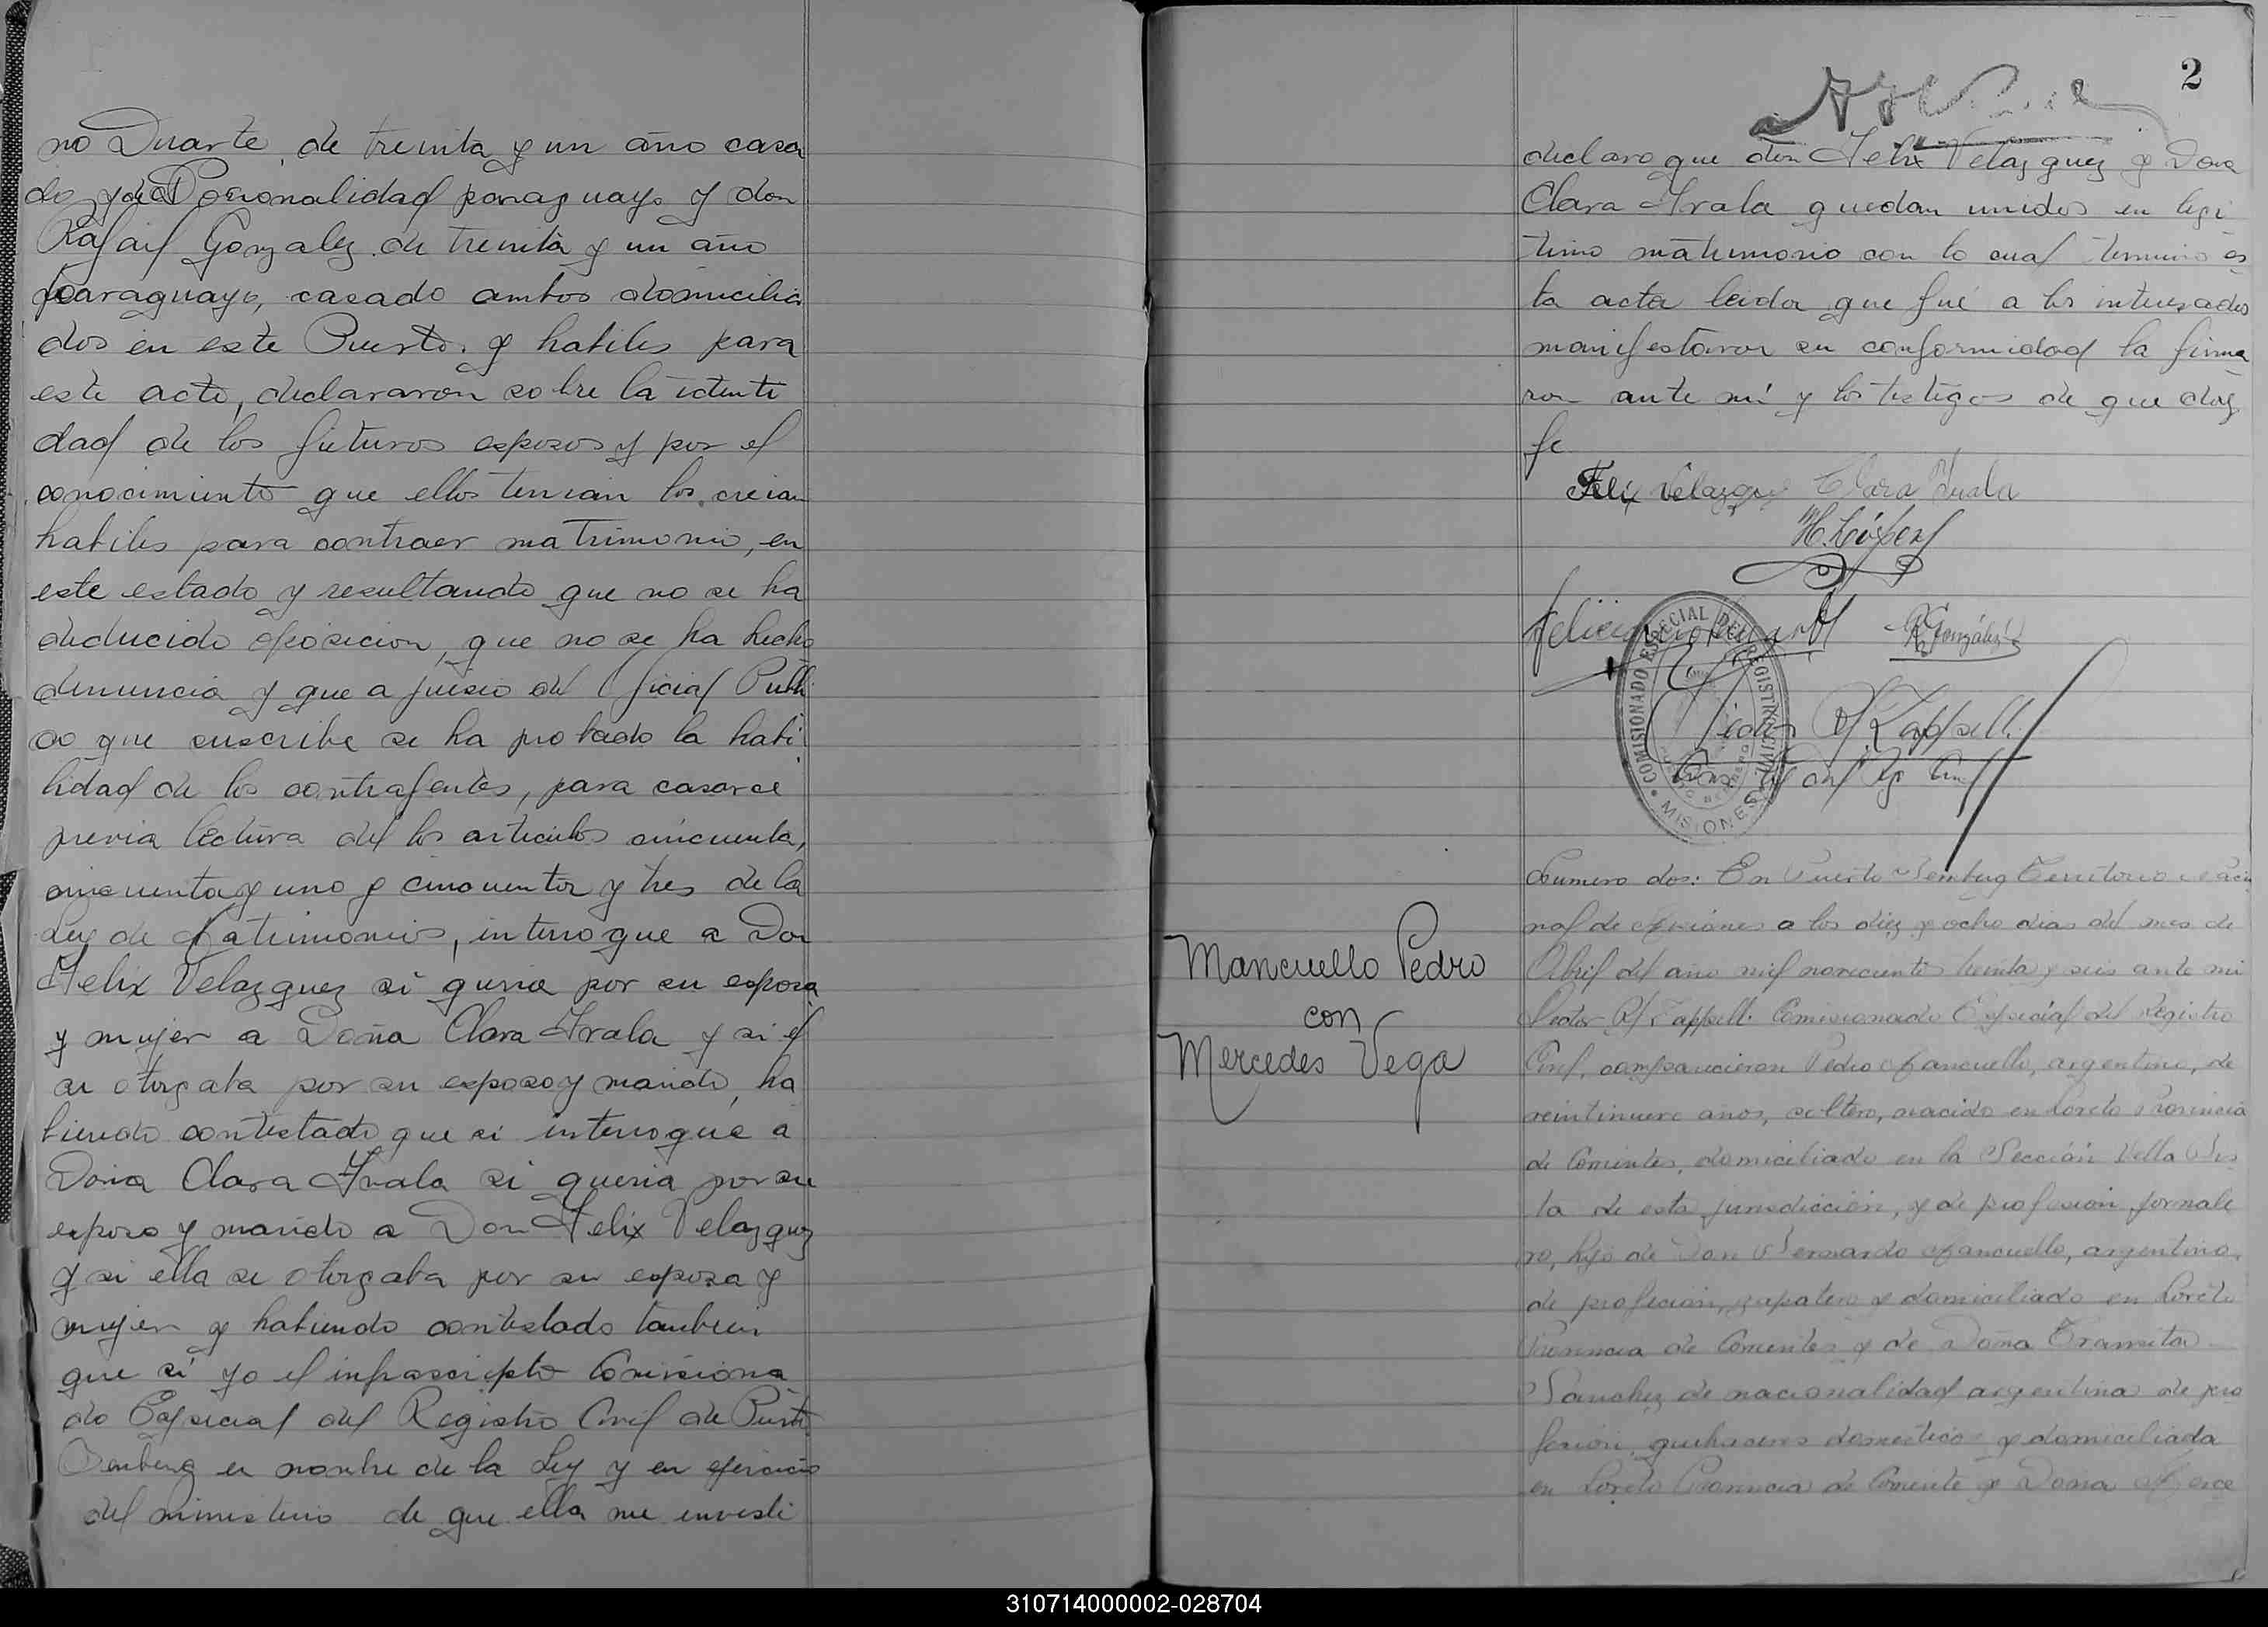 no Duarte, de treinta y un año casa
do y de Nacionalidad paraguayo y don
Rafael Gonzalez de treinta y un año
paraguayo, casado ambos domicilia
dos en este Puerto. y habiles para
este acto, declararon sobre la identi
dad de los futuros esposos y por el
conocimiento que ellos tenian los creian
habiles para contraer matrimonio, en
este estado y resultando que no se ha
deducido oposicion, que no se ha hecho
denuncia y que a juicio del Oficial Publi
co que suscribe se ha probado la habi
lidad de los contrayentes, para casarce
previa lectura del los articulos cincuenta,
cincuenta y uno y cincuenta y tres de la
Ley de Matrimonios, interrogue a Don
Felix Velazquez si queria por su esposa
y mujer a Doña Clara Irala y si el
se otorgaba por su esposo y marido, ha
biendo contestado que si interrogue a
Dona Clara Irala si queria por su
esposo y marido a Don Felix Velazquez
y si ella se otorgaba por su esposa y
mujer y habiendo contestado tambien
que si yo el infrascripto Comisiona
do Especial del Registro Civil de Puerto
Bemberg en nombre de la Ley y en ejercicio
del ministerio de que ella me investi
2
declaro que don Felix Velazquez y Dona
Clara Irala quedan unidos en legi
timo matrimonio con lo cual termino es
ta acta leida que fué a los interesados
manifestaron su conformidad la firma
ron ante mi y los testigos de que doy
fe
Felix Velazquez Clara Irala
R González
COMISIONADO ESPECIAL DEL REGISTRO CIVIL
MISIONES
Numero dos: En Puerto Bemberg Territorio Nacio
nal de Misiones a los diez y ocho dias del mes de
Abril del año mil novecientos treinta y seis ante mi
Hector R. Tappell. Comisionado Especial del Registro
Civil, comparecieron Pedro Mancuello, argentino, de
veintinueve años, soltero, nacido en Loreto Provincia
de Corrientes, domiciliado en la Sección Vella Vis
ta de esta jurisdicción, y de profesion jornale
ro, hijo de Don Bernardo Mancuello, argentino,
de profecion, zapatero y domiciliado en Loreto
Provincia de Corrientes y de Doña Transita
Sanchez de nacionalidad argentina de pro
fesion, quehaceres domesticos y domiciliada
en Loreto Provincia de Corriente y Dona Merce
Mancuello Pedro
con
Mercedes Vega
310714000002-028704